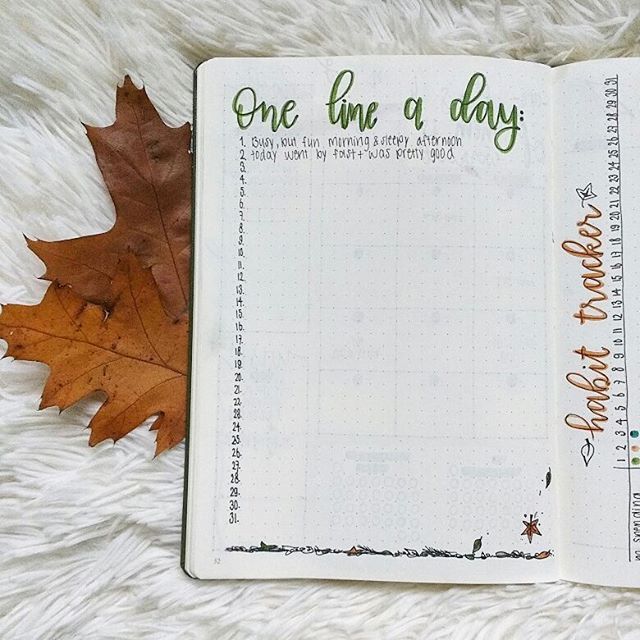 One line a day:
1. Busy, but fun morning & sleepy afternoon
2. today went by fast + was pretty good
3.
4.
5.
6.
7.
8.
9.
10.
11.
12.
13.
14.
15.
16.
17.
18.
19.
20.
21.
22.
23.
24.
25.
26.
27.
28.
29.
30.
31.
52
habit tracker
1 2 3 4 5 6 7 8 9 10 11 12 13 14 15 16 17 18 19 20 21 22 23 24 25 26 27 28 29 30 31
no spending